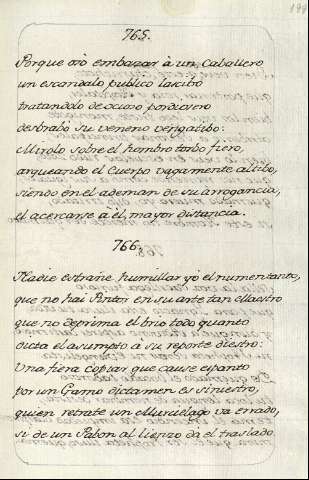 765.
Porque osó embarzar à un Caballero
un escandalo publico lascibo
tratandolo de ocioso pordiosero
desbrabò su veneno vengatibo:
Mirolo sobre el hombro torbo fiero,
arqueando el Cuerpo vagamente altibo,
siendo en el ademan de su arrogancia,
el acercarse à èl, mayor distancia.
766.
Nadie estrañe humillar yò el numen tanto,
que no hai Pintor en su arte tan Maestro
que no deprima el brio todo quanto
dicta el asumpto à su reporte diestro:
Una fiera copiar que cause espanto
por un Gamo dictamen es siniestro,
quien retrate un Murciélago va errado,
si de un Pabon al lienzo dà el traslado.